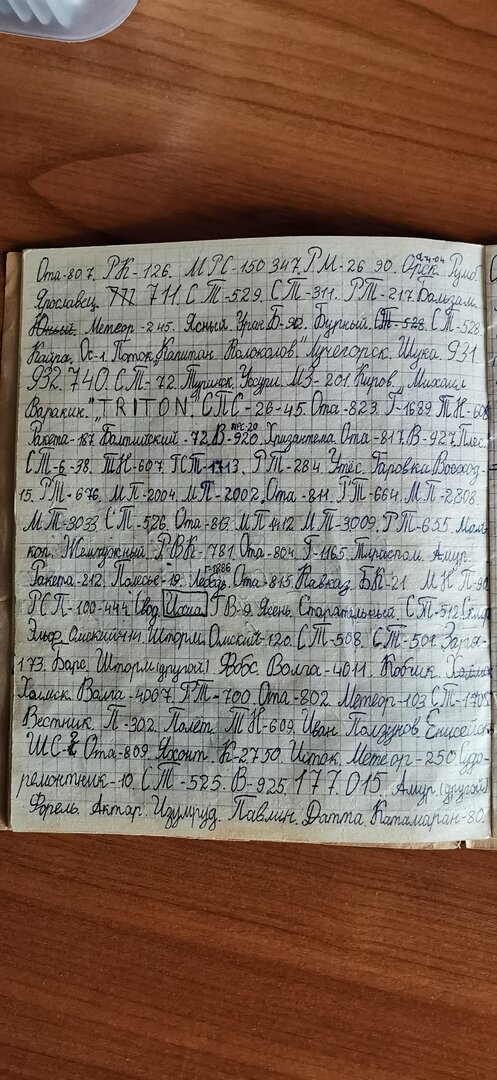 Ота-807. РК-126. МРС-150 347. РМ-26 90. Орск. Румб
Ярославец. 711. СТ-529. СТ-311. РТ-217. Бальзам.
Юный. Метеор-245. Ясный. Уран. Б-92. Бурный. СТ-528 СТ-528
Кайра. Ос-1. Поток. "Капитан Колоколов". Лучегорск. Щука. 931
932. 740. СТ-72. Туринск. Уссури. МЭ-201. Киров. "Михаил
Варакин". "TRITON. СПС-26-45. Ота-823. Г-1689. ТН-608
Ракета-187. Балтийский-72. В-920. Хризантема. Ота-817. В-927. Плёс.
СТ-6-38. ТН-607. ГСТ-1713. РТ-284. Утёс. Гаровка.
15. РТ-676. МП-2004. МП-2002. Ота-811. РТ-664. МП-2808.
МТ-3033. СТ-526. Ота-813. МП 1412. МТ-3009. РТ-655.
Жемчужный. РВК-781. Ота-804. Г-1165. Тирасполь. Амур.
Ракета-212. Полесье-19. Лебедь. Г-1886 Ота-815. Кавказ. БК-21. МКП-90
РСП-100-444. Свод. ГВ-9. Ясень. Старательный. СТ-512.
Шторм. Омский-120. СТ-508. СТ-501. Заря-
173. Барс. Шторм (другой). Фобс. Волга-4011. Кобчик.
Холмск. Волга-4007. РТ-700. Ота-802. Метеор-103. СТ-1705
Вестник. П-302. Полёт. ТН-609. Иван Ползунов. Енисейск
ШС-2. Ота-809. Яхонт. К-2750. Исток. Метеор-250. Судо-
ремонтник-10. СТ-525. В-925. 177. 015. Амур (другой)
Форель. Актар. Изумруд. Павлин. Датта. Катамаран-80.